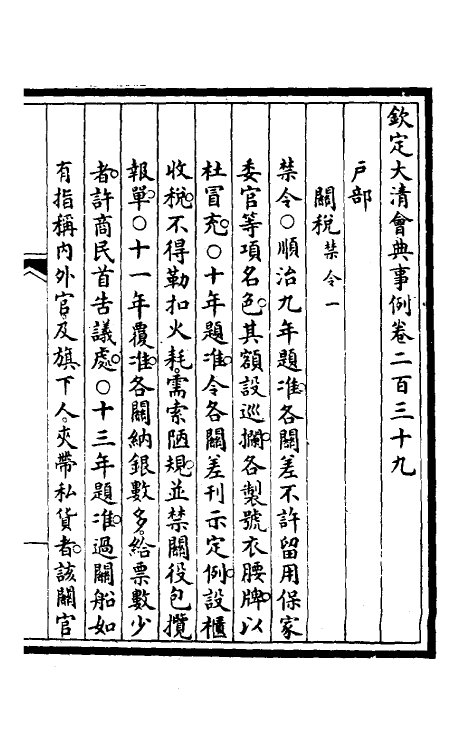 欽定大清會典事例卷二百三十九
戶部
關稅禁令一
禁令○順治九年題准。各關差不許留用保家
委官等項名色。其額設巡攔。各製號衣腰牌。以
杜冒充。○十年題准。令各關差刊示定例。設櫃
收稅。不得勒扣火耗。需索陋規。並禁關役包攬
報單。○十一年覆准。各關納銀數多。給票數少
者。許商民首告議處。○十三年題准。過關船如
有指稱內外官及旗下人。夾帶私貨者。該關官